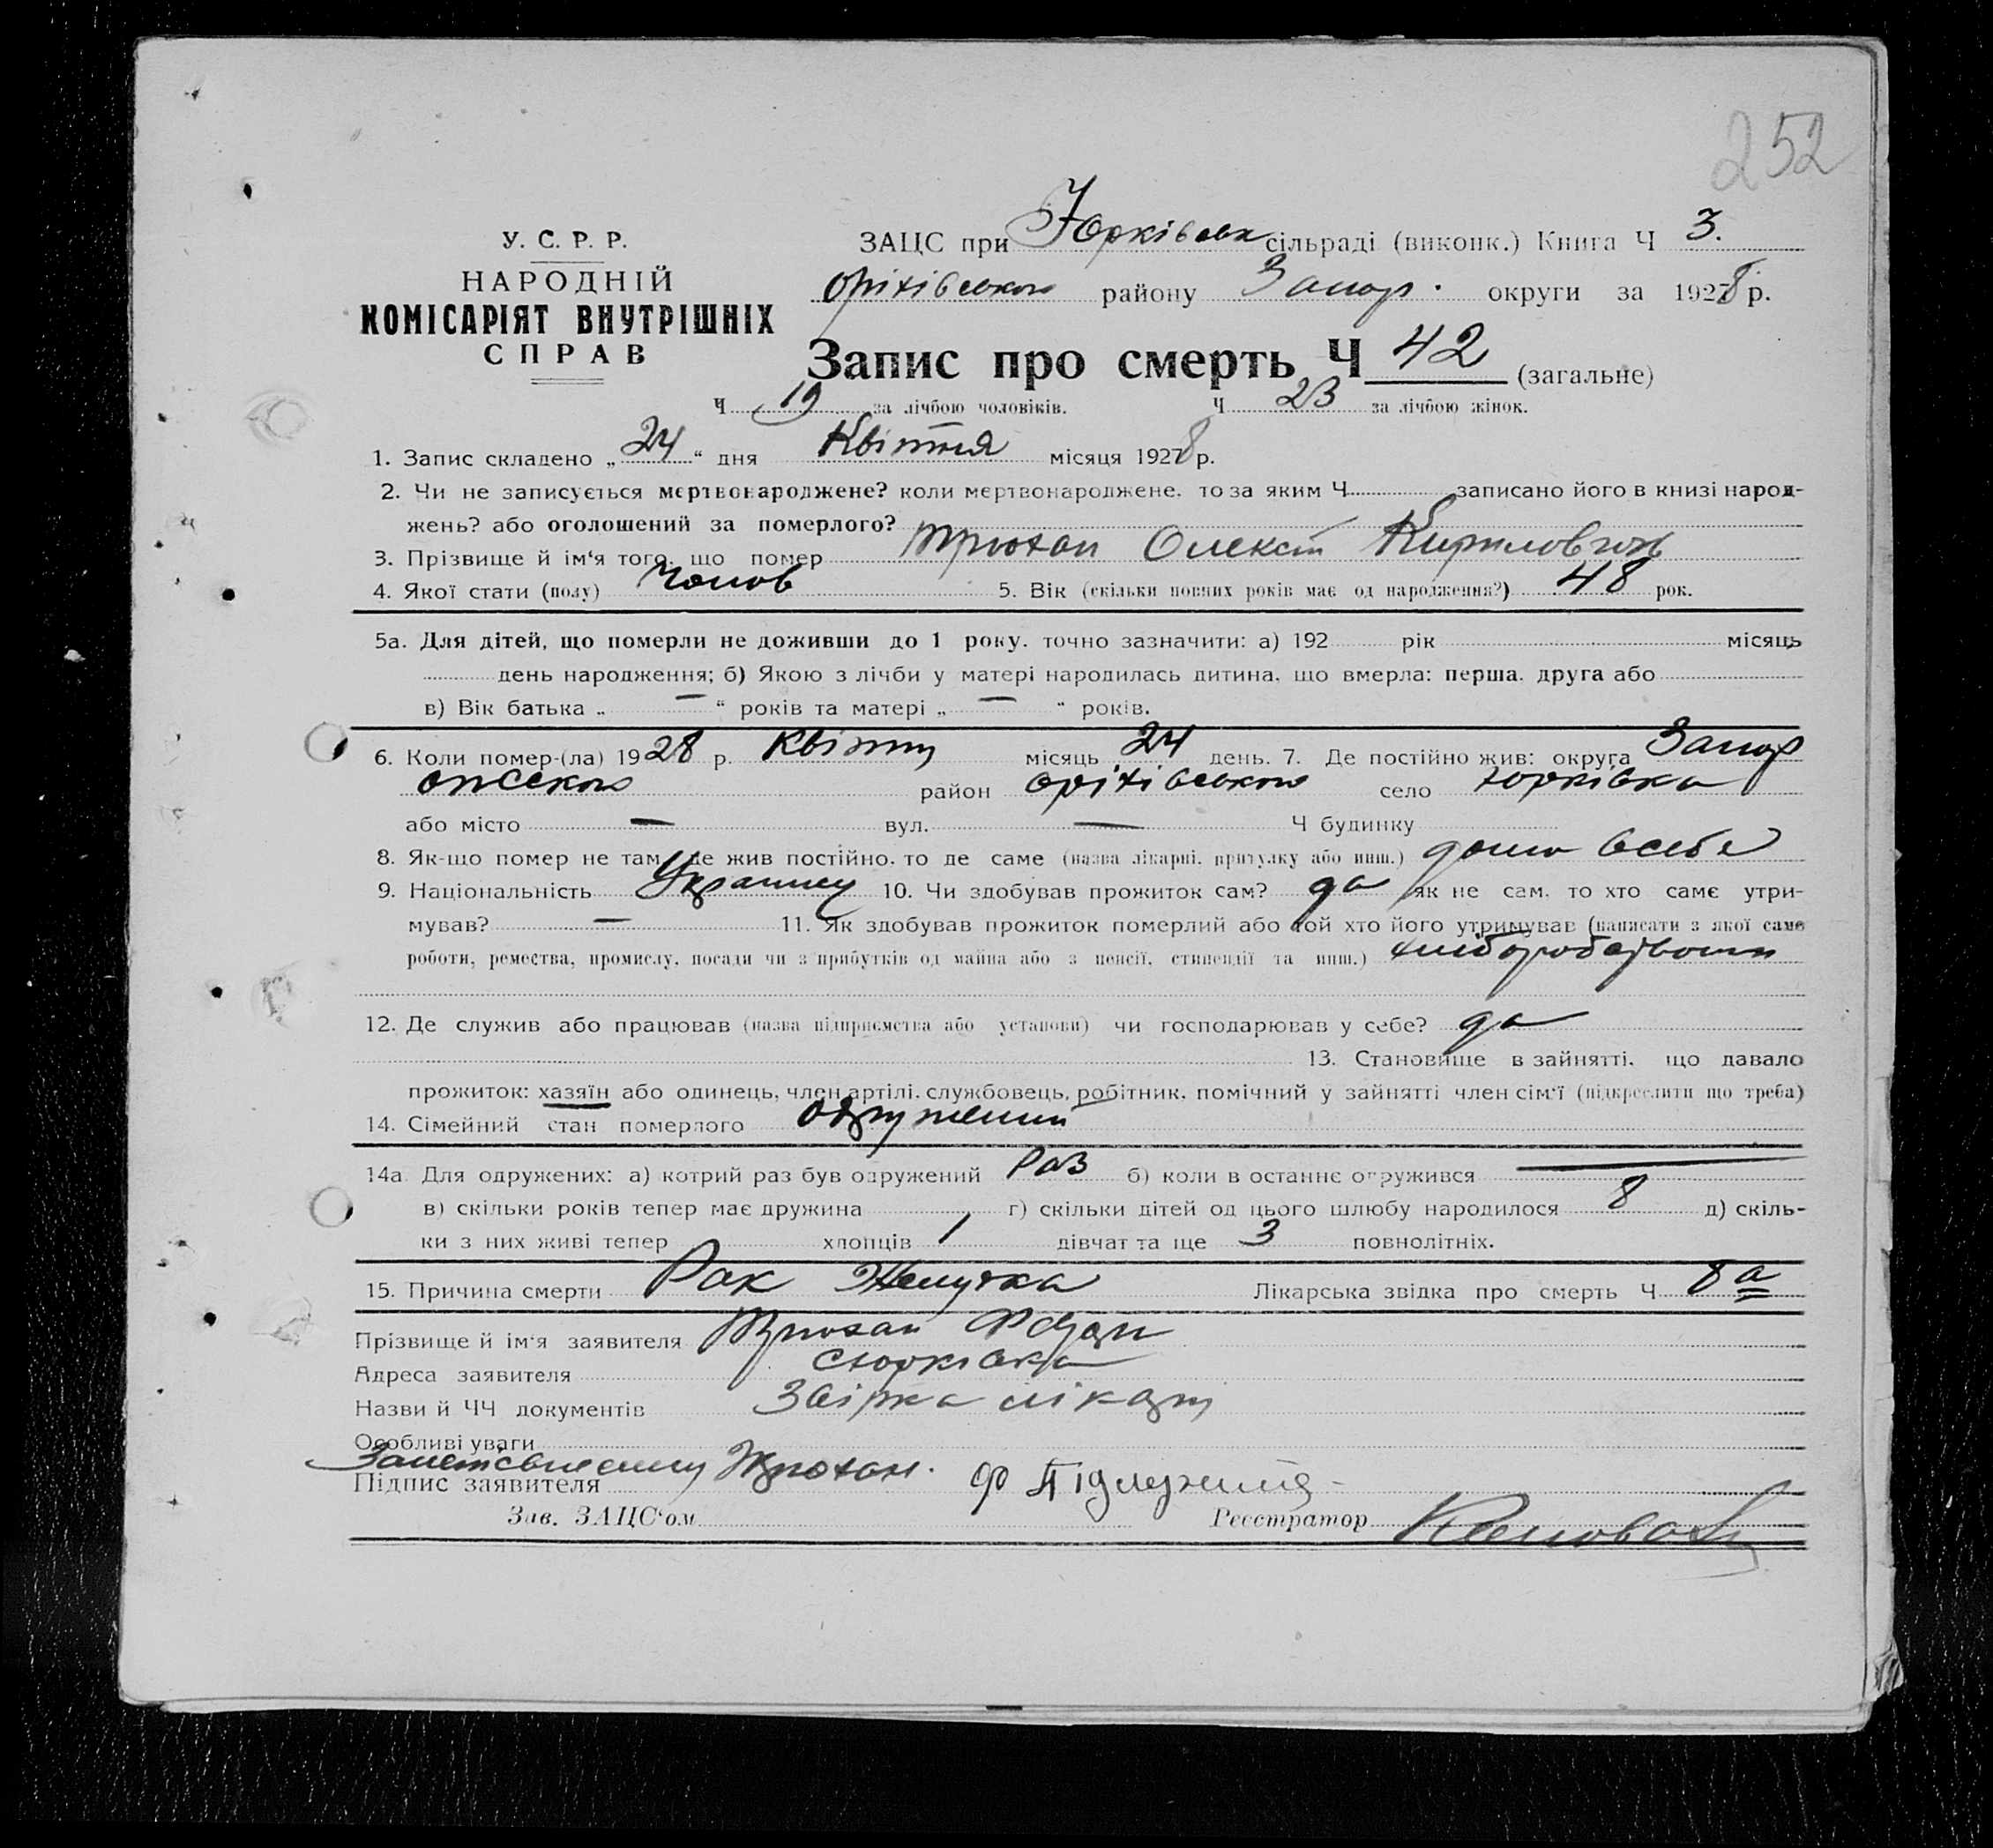 252
У. С. Р. Р.
НАРОДНІЙ
КОМІСАРІЯТ ВНУТРІШНІХ
СПРАВ
ЗАЦС при Юрківськ сільраді (виконк.) Книга Ч 3.
Оріхівського району Запор. округи за 1928 р.
Запис про смерть Ч 42 (загальне)
Ч 19 за лічбою чоловіків. Ч 23 за лічбою жінок.
1. Запис складено „ 24 “ дня Квітня місяця 1928 р.
2. Чи не записується мертвонароджене? коли мертвонароджене, то за яким Ч записано його в книзі народ-
жень? або оголошений за померлого?
3. Прізвище й ім‘я того, що помер Трюхан Олексі Кирилович
4. Якої стати (полу) Чолов 5. Вік (скільки повних років має од народження?) 48 рок.
5а. Для дітей, що померли не доживши до 1 року, точно зазначити: а) 192 рік місяць
день народження; б) Якою з лічби у матері народилась дитина, що вмерла: перша, друга або
в) Вік батька „ — “ років та матері „ — “ років.
6. Коли помер-(ла) 1928 р. Квітня місяць 24 день. 7. Де постійно жив: округа Запор
ожсько район Оріхівського село Юрківка
або місто — вул. — Ч будинку
8. Як-що помер не там, де жив постійно, то де саме (назва лікарні, притулку або инш.) дома всебе
9. Національність Украинец 10. Чи здобував прожиток сам? да як не сам, то хто саме утри-
мував? — 11. Як здобував прожиток померлий або той хто його утримував (написати з якої саме
роботи, ремества, промислу, посади чи з прибутків од майна або з пенсії, стипендії та инш.)
12. Де служив або працював (назва підприємства або установи) чи господарював у себе? да
13. Становище в зайнятті, що давало
прожиток: хазяїн або одинець, член артілі, службовець, робітник, помічний у зайнятті член сім‘ї (підкреслити що треба)
14. Сімейний стан померлого одружений
14а Для одружених: а) котрий раз був одружений Раз б) коли в останнє одружився —
в) скільки років тепер має дружина г) скільки дітей од цього шлюбу народилося 8 д) скіль-
ки з них живі тепер хлопців 1 дівчат та ще 3 повнолітніх.
15. Причина смерти Рак Желудка Лікарська звідка про смерть Ч 8а
Прізвище й ім‘я заявителя Трюхан
Адреса заявителя с Юрківка
Назви й ЧЧ документів
Особливі уваги
Підпис заявителя Трюхан.
Зав. ЗАЦС‘ом Реєстратор